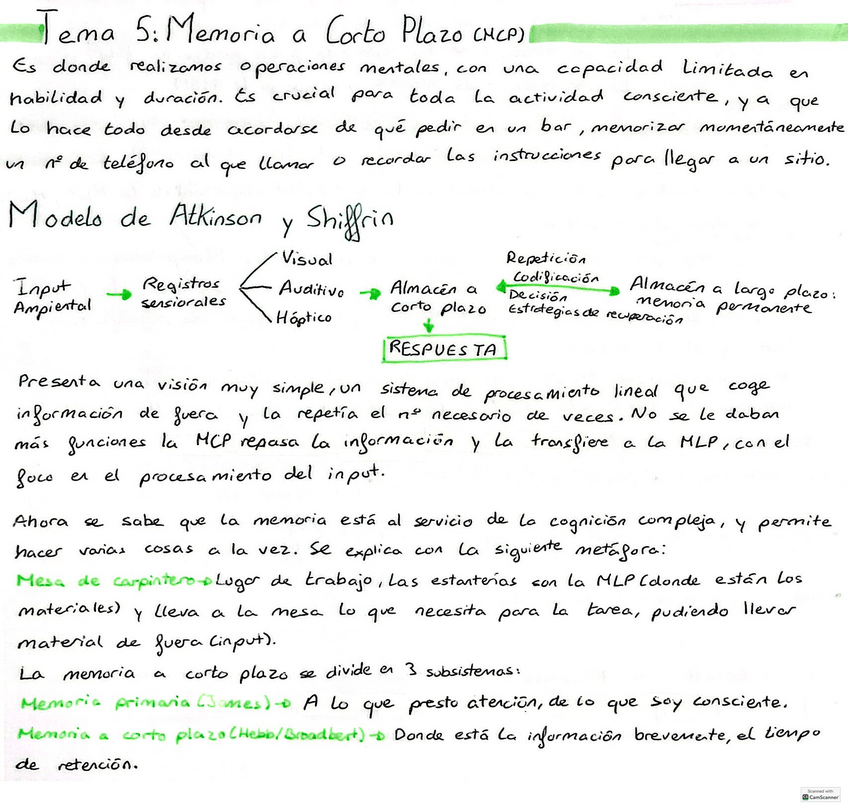 Tema 5: Memoria a Corto Plazo (MCP)
Es donde realizamos operaciones mentales, con una capacidad limitada en
habilidad y duración. Es crucial para toda la actividad consciente, ya que
lo hace todo desde acordarse de qué pedir en un bar, memorizar momentáneamente
un nº de teléfono al que llamar o recordar las instrucciones para llegar a un sitio.
Modelo de Atkinson y Shiffrin
Input
Ampiental
Registros
sensioriales
Visual
Auditivo
Hóptico
Almacén a
corto plazo
Repetición
Codificación
Decisión
Estrategias de recuperación
Almacén a largo plazo:
memoria permanente
RESPUESTA
Presenta una visión muy simple, un sistema de procesamiento lineal que coge
información de fuera y la repetía el nº necesario de veces. No se le daban
más funciones la MCP repasa la información y la transfiere a la MLP, con el
foco en el procesamiento del input.
Ahora se sabe que la memoria está al servicio de la cognición compleja, y permite
hacer varias cosas a la vez. Se explica con la siguiente metáfora:
Mesa de carpintero → Lugar de trabajo, las estanterías son la MLP (donde están los
materiales) y lleva a la mesa lo que necesita para la tarea, pudiendo llevar
material de fuera (input).
La memoria a corto plazo se divide en 3 subsistemas:
Memoria primaria (James) → A lo que presto atención, de lo que soy consciente.
Memoria a corto plazo (Hebb/Broadbert) → Donde está la información brevemente, el tiempo
de retención.
Scanned with
CamScanner